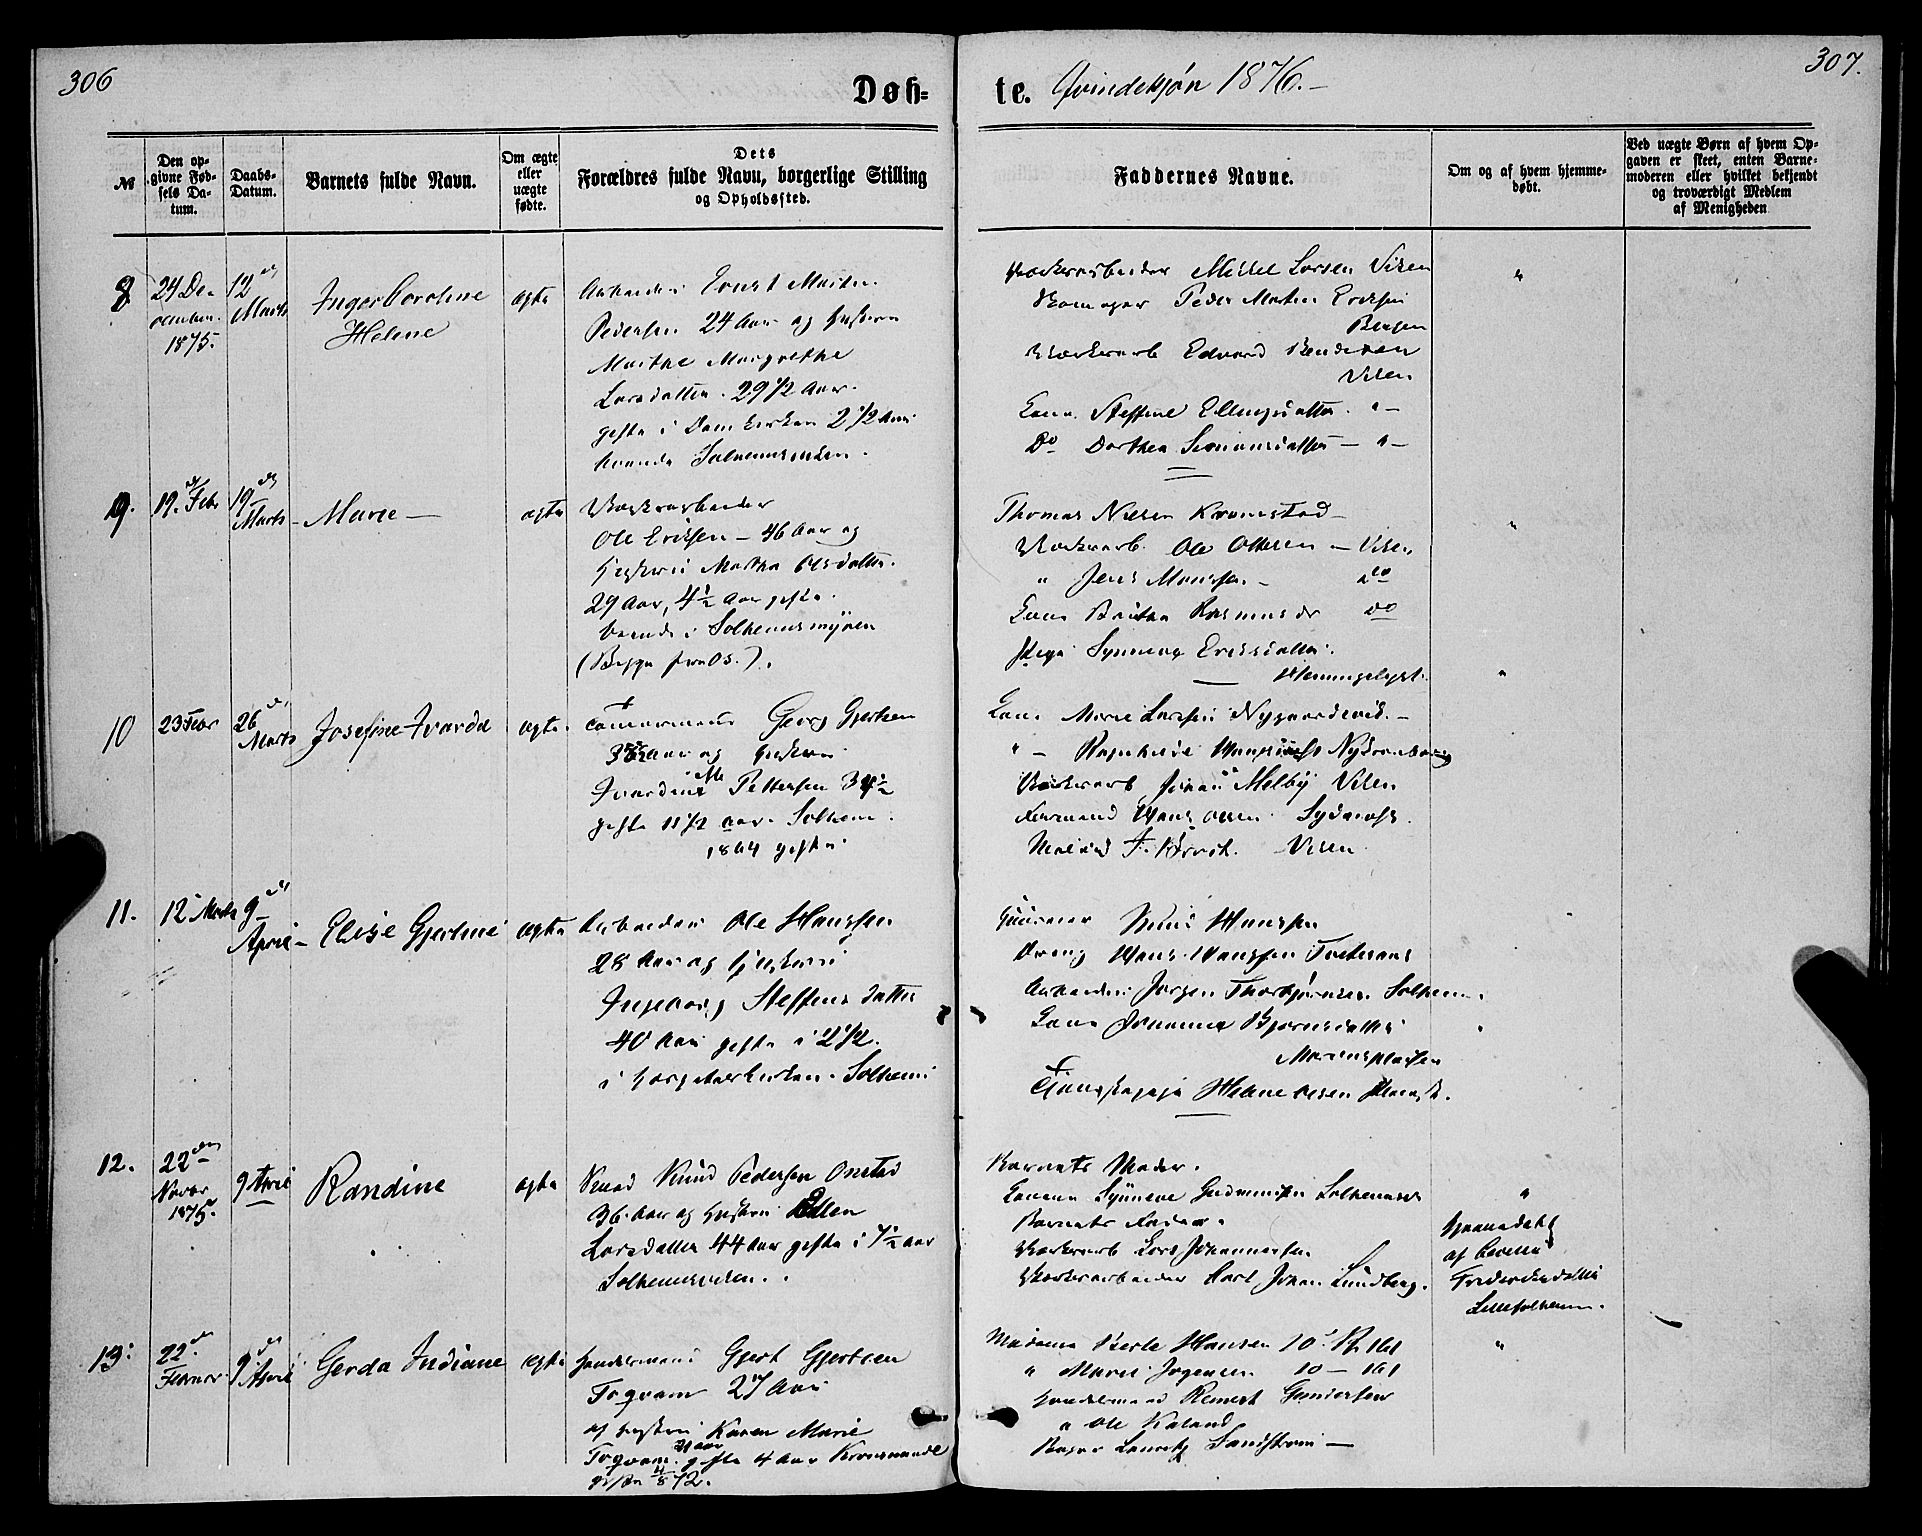 306
307.
Døb-
te. Qvindekjøn 1876.-
№
Den op-
givne Fød-
sels Da-
tum.
Daabs-
Datum.
Barnets fulde Navn.
Om ægte
eller
uægte
fødte.
Dets
Forældres fulde Navn, borgerlige Stilling
og Opholdssted.
Faddernes Navne.
Om og af hvem hjemme-
døbt.
Ved uægte Børn af hvem Op-
gaven er skeet, enten Barne-
moderen eller hvilket bekjendt
og troværdigt Medlem
af Menigheden
8
24 De-
cember
1875.
12
Marts
Inger Caroline
Helene
ægte
Arbeider Ernst Martin
Pedersen 24 Aar og Hustru
Marthe Margrethe
Larsdatter 29 1/2 Aar.
gifte i Domkirken 2 1/2 Aar
boende Solheimsviken.
Værksarbeider Mikkel Larsen Viken
Skomager Peder Martin Eriksen
Bergen
Værksarb Edvard Bendixen
Viken
Kone Steffine Ellingsdatter "-
Do Dorthea Simonsdatter - " -
"
9.
19. Febr
19
Marts
- Marie -
ægte
Værksarbeider
Ole Eriksen - 46 Aar og
Hustru Martha Olsdatter.
29 Aar, 4 1/2 Aar gifte.
boende i Solheimsmyren
(Begge fra Os.).
Thomas Nilsen Kronstad -
Værksarb. Ole Olsen - Viken
" Jens Monsen - do
Kone Brithe Rasmusdr do
Pige Synneve Eriksdatter.
Flemmingslyst.
"
10
23 Febr
26
Marts
Josefine Ivarda
ægte.
Tømmermand Georg Gjertsen
Aar og Hustru
Ivardine Pettersen 34 1/2
gifte 11 1/2 aar. Solheim.
1864 gifte.
Kone Marie Larsen Nygaardsvik. -
Værksarb Johan Melby Viken
Formand Hans Olsen
Viken
"
11.
12 Marts
9
April -
Elise Gjertine
ægte
Arbeider Ole Hanssen
28 Aar og Hustru
Ingeborg Steffens datter
40 Aar gifte i 2 1/2.
i Korskirken. Solheim
Hanssen
Dreng Hans Hanssen Tveteraas
Arbeider Jørgen Thorbjørnsen Solheim.
Kone Johanne Bjørnsdatter
Marienspladsen
Tjenestepige Helene Olsen
12.
22den
Novbr
1875.
9 April
Randine
ægte
Knud Pedersen Onstad
36. Aar og Hustru Ellen
Larsdatter 44 Aar gifte i 7 1/2 Aar
Solheimsviken..
Barnets Moder.
Konen Synneve Gudmundsen Solheimsvik
Barnets Fader.
Værksarb Lars Johannessen
Værksarbeider Karl Johan Lundberg.
"
hjemmedøbt
af Konen
Frederiksdatter
Lillesolheim.
13.
22.
Februar
9 April
Gerda Indiane
ægte
Handelsmand Gjert Gjertsen
Togvam 27 Aar
og Hustru Karen Marie
Togvam. 21 aar gifte 4 Aar
gifte 4/8 72.
Madame Berle Hansen 10de R. 161
" Marie Jørgensen 10 - 161
Handelsmand Reinert Gundersen
" Ole Kaland
Bager Lauritz Sandstrøm -
"